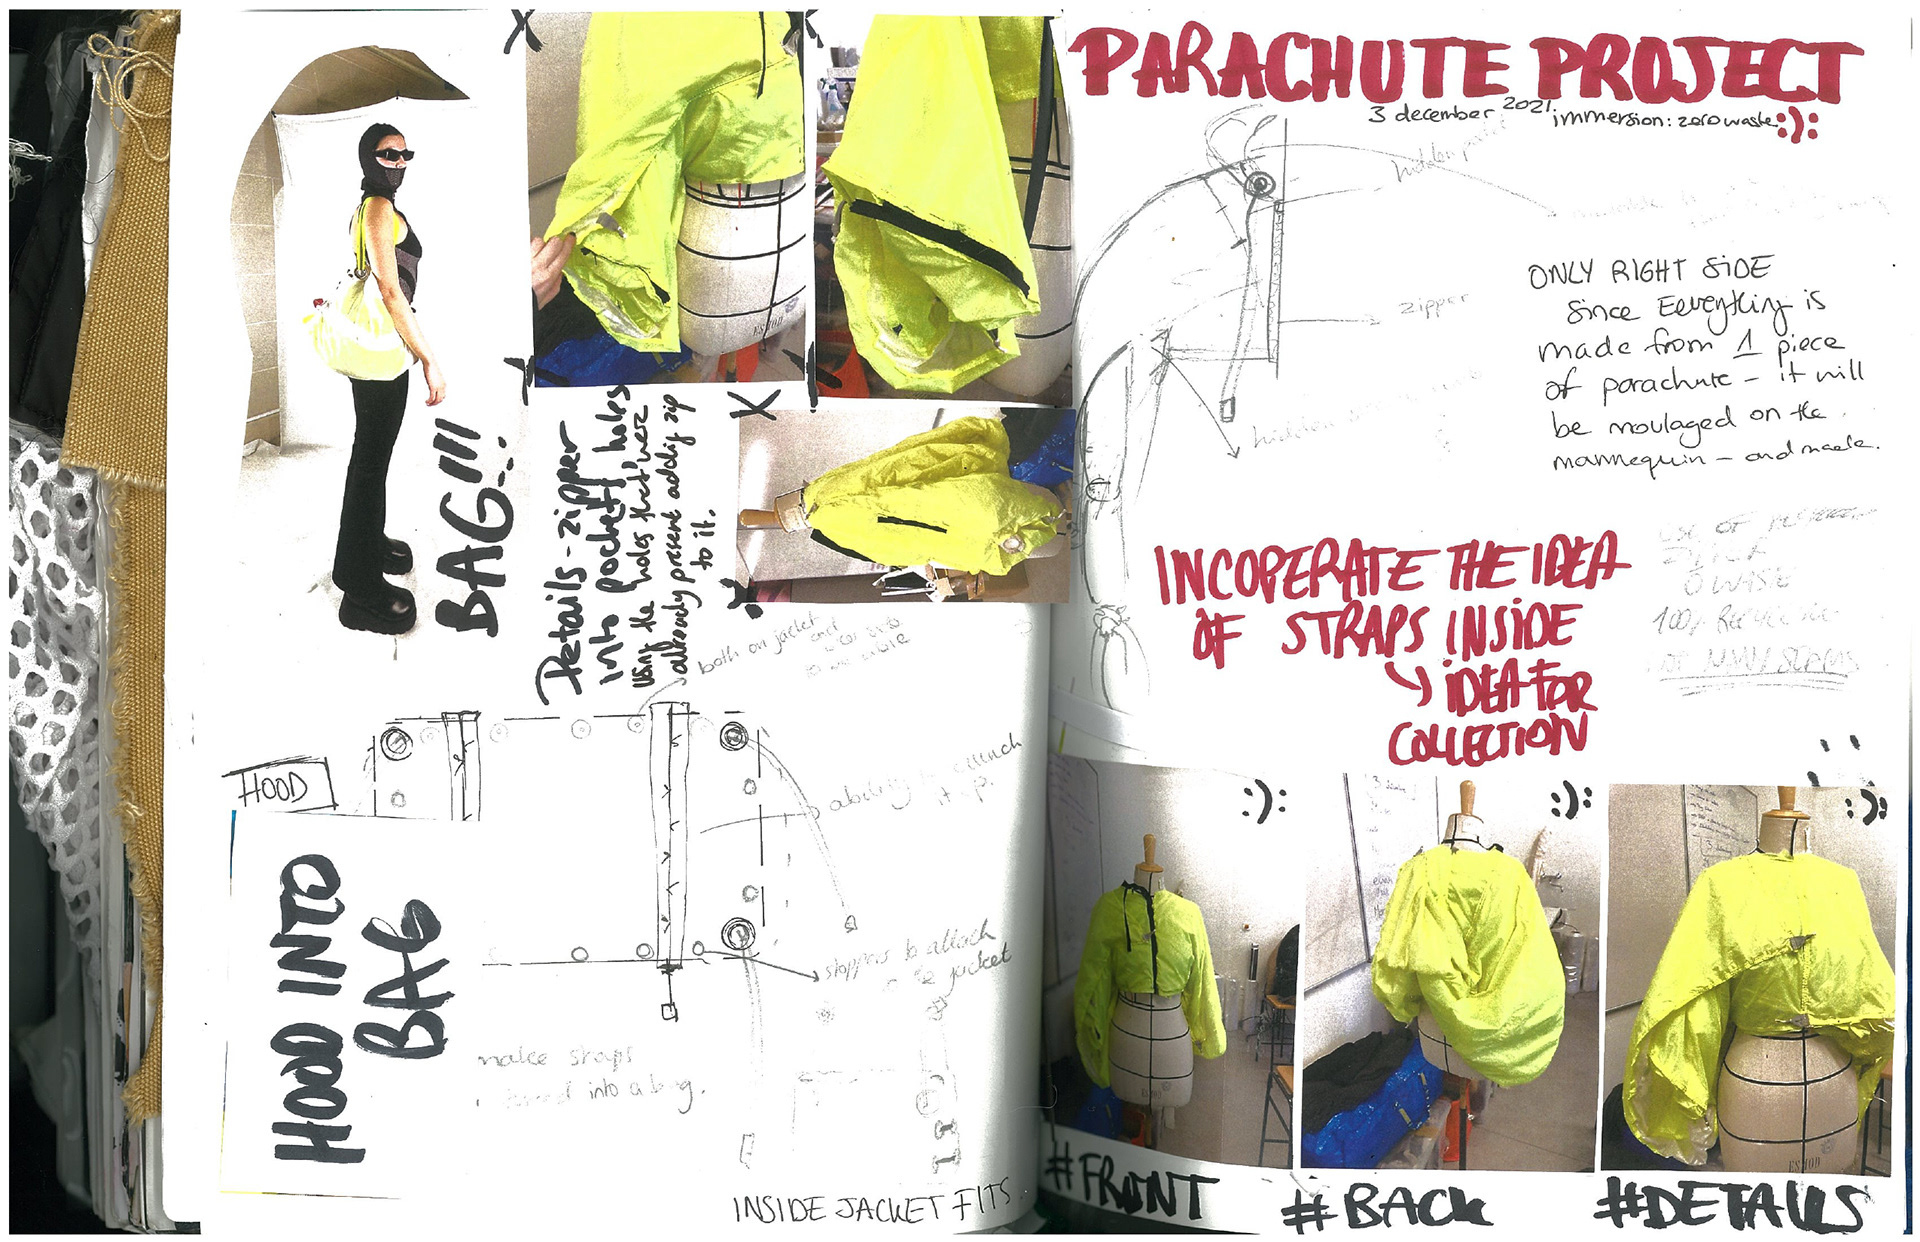 BAG!!!
Details - zipper
into pocket, holes
using the holes that were
already present adding zip
to it.
both on jacket
and
HOOD
ability to crunch
it up.
HOOD INTO
BAG
stoppers to attach
jacket
make straps
into a bag.
INSIDE JACKET FITS
PARACHUTE PROJECT
3 december 2021
immersion: zero waste :):
hidden
zipper
hidden
ONLY RIGHT SIDE
since Eeverything is
made from 1 piece
of parachute - it will
be moulaged on the
mannequin - and made.
USE OF
0 WASTE
100%
NOT MANY SEAMS
INCOPERATE THE IDEA
OF STRAPS INSIDE
IDEA FOR
COLLECTION
:):
:):
:):
#FRONT
#BACK
#DETAILS
ESMOD
ESMOD